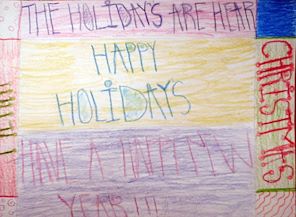 THE HOLIDAYS ARE HEAR
HAPPY
HOLIDAYS
HAVE A
YEAR!!!
CHRISTMAS